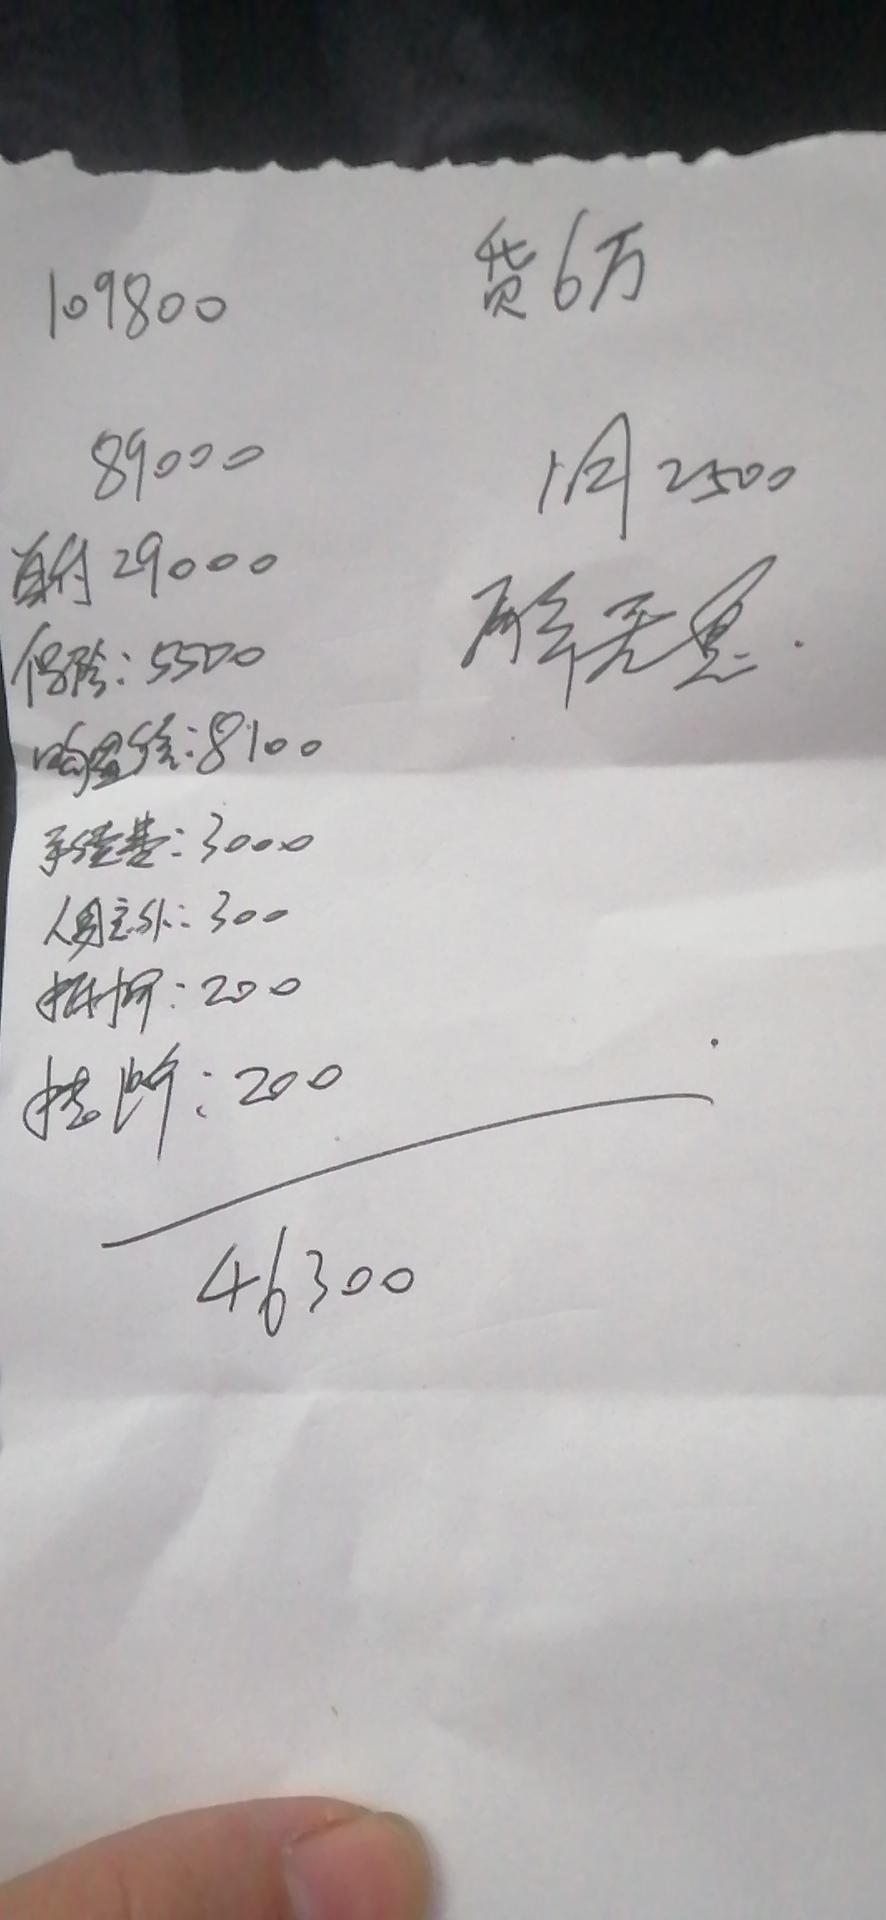 109800
贷6万
89000
1月2500
首付29000
两年无息.
保险:5500
购置税:8100
手续费:3000
人身意外:300
抵押:200
挂牌:200
46300